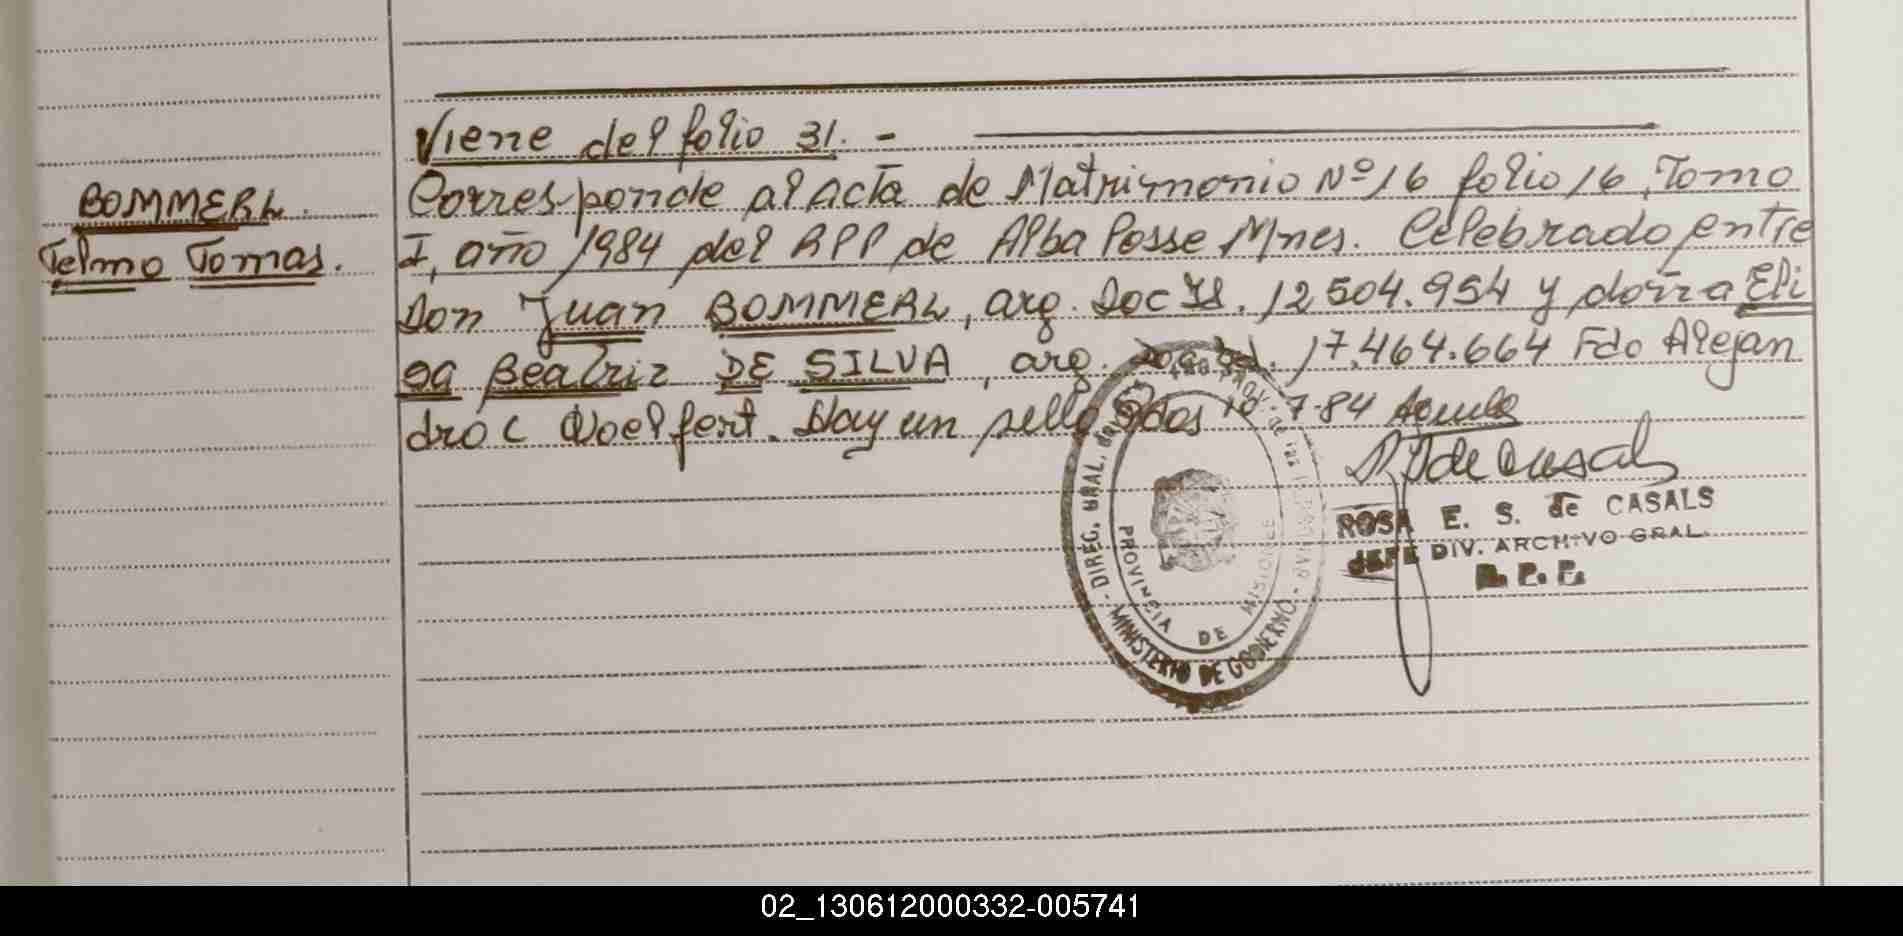 Viene del folio 31. -
BOMMERL.
Telmo Tomas.
Corresponde al acta de Matrimonio Nº 16 folio 16, Tomo
I, año 1984 del RPP de Alba Posse Mnes. Celebrado entre
Don Juan BOMMERL, arg. Doc Id. 12 504.954 y doña Eli
sa Beatriz DE SILVA, arg. 17.464.664 Fdo Alejan
dro C Woelfert. Hay un sello Pdas 10-7-84
ROSA E. S. de CASALS
JEFE DIV. ARCHIVO GRAL.
R. P. P.
DIREC. GRAL. del
PROVINCIA DE MISIONES
- MINISTERIO DE GOBIERNO -
02_130612000332-005741